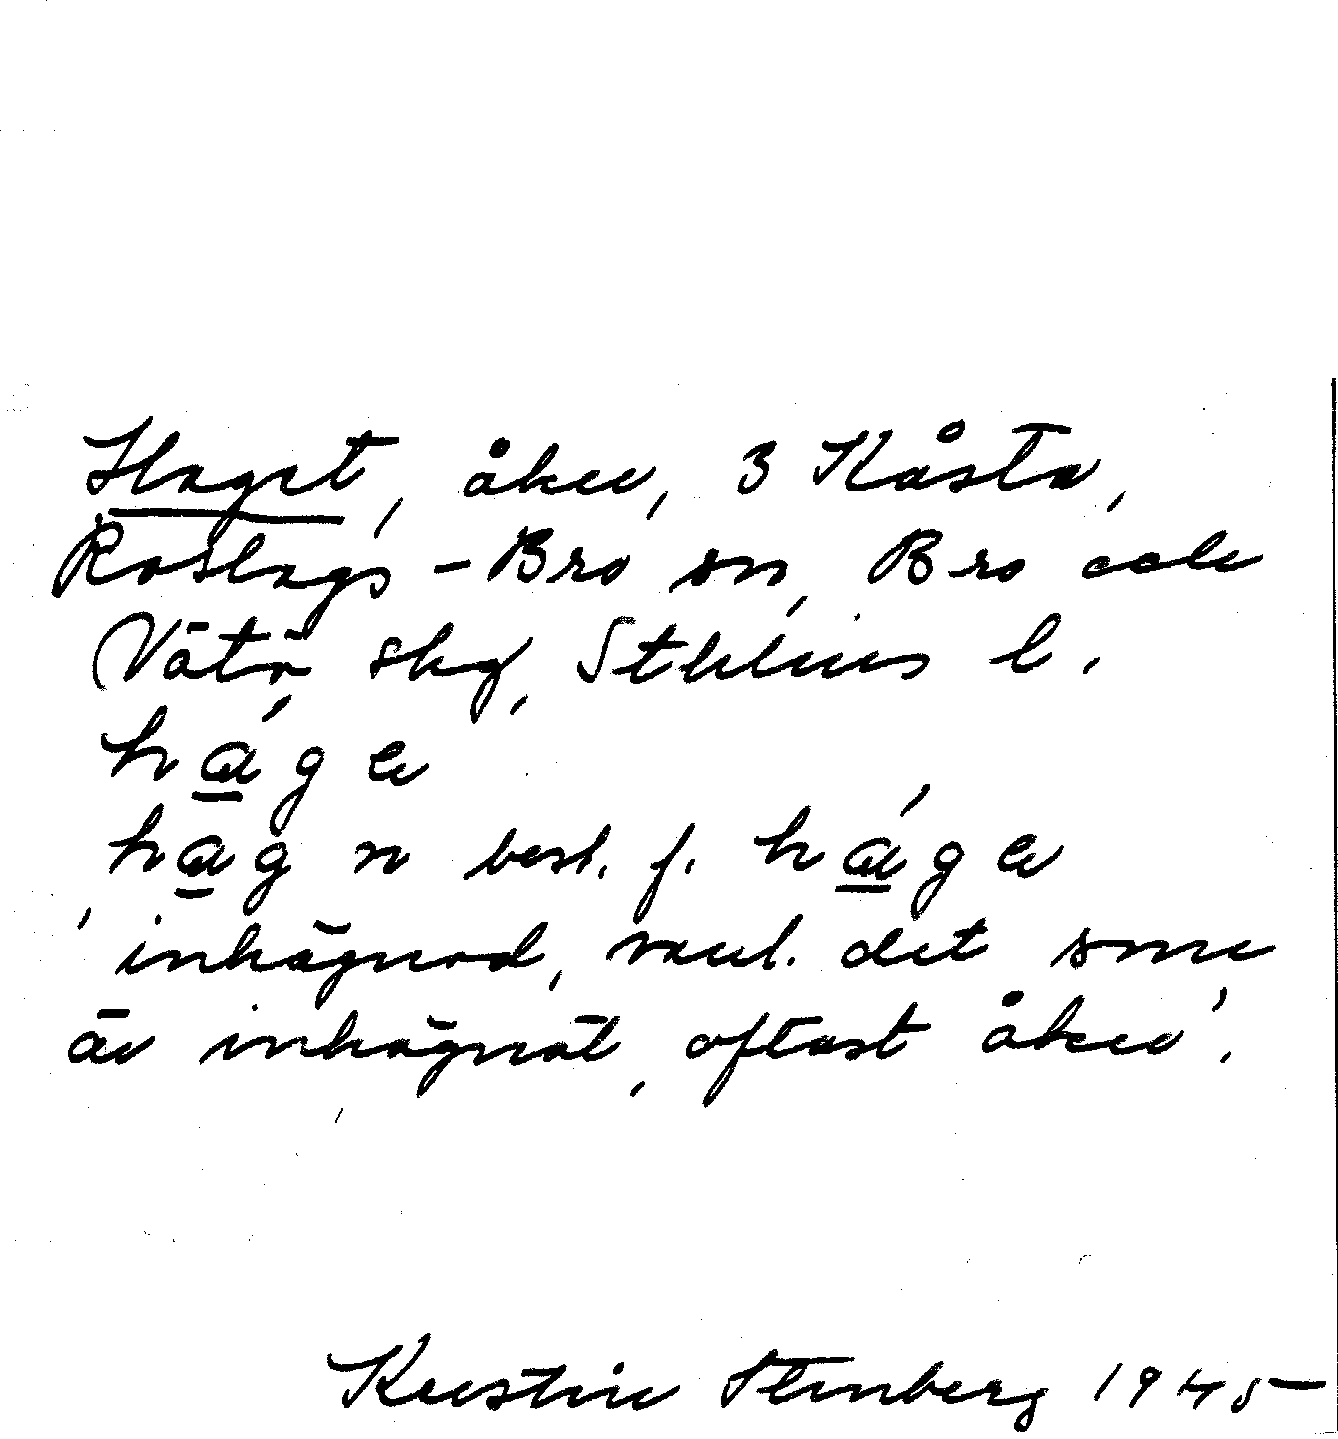 Haget, åker, 3 Kåsta,
Roslags-Bro sn, Bro och
Vätö skg, Sthlms l.
há̱ge
ha̱g n best. f. há̱ge
'inhägnad, vanl. det som
är inhägnat, oftast åker'.
Kerstin Stenberg 1945